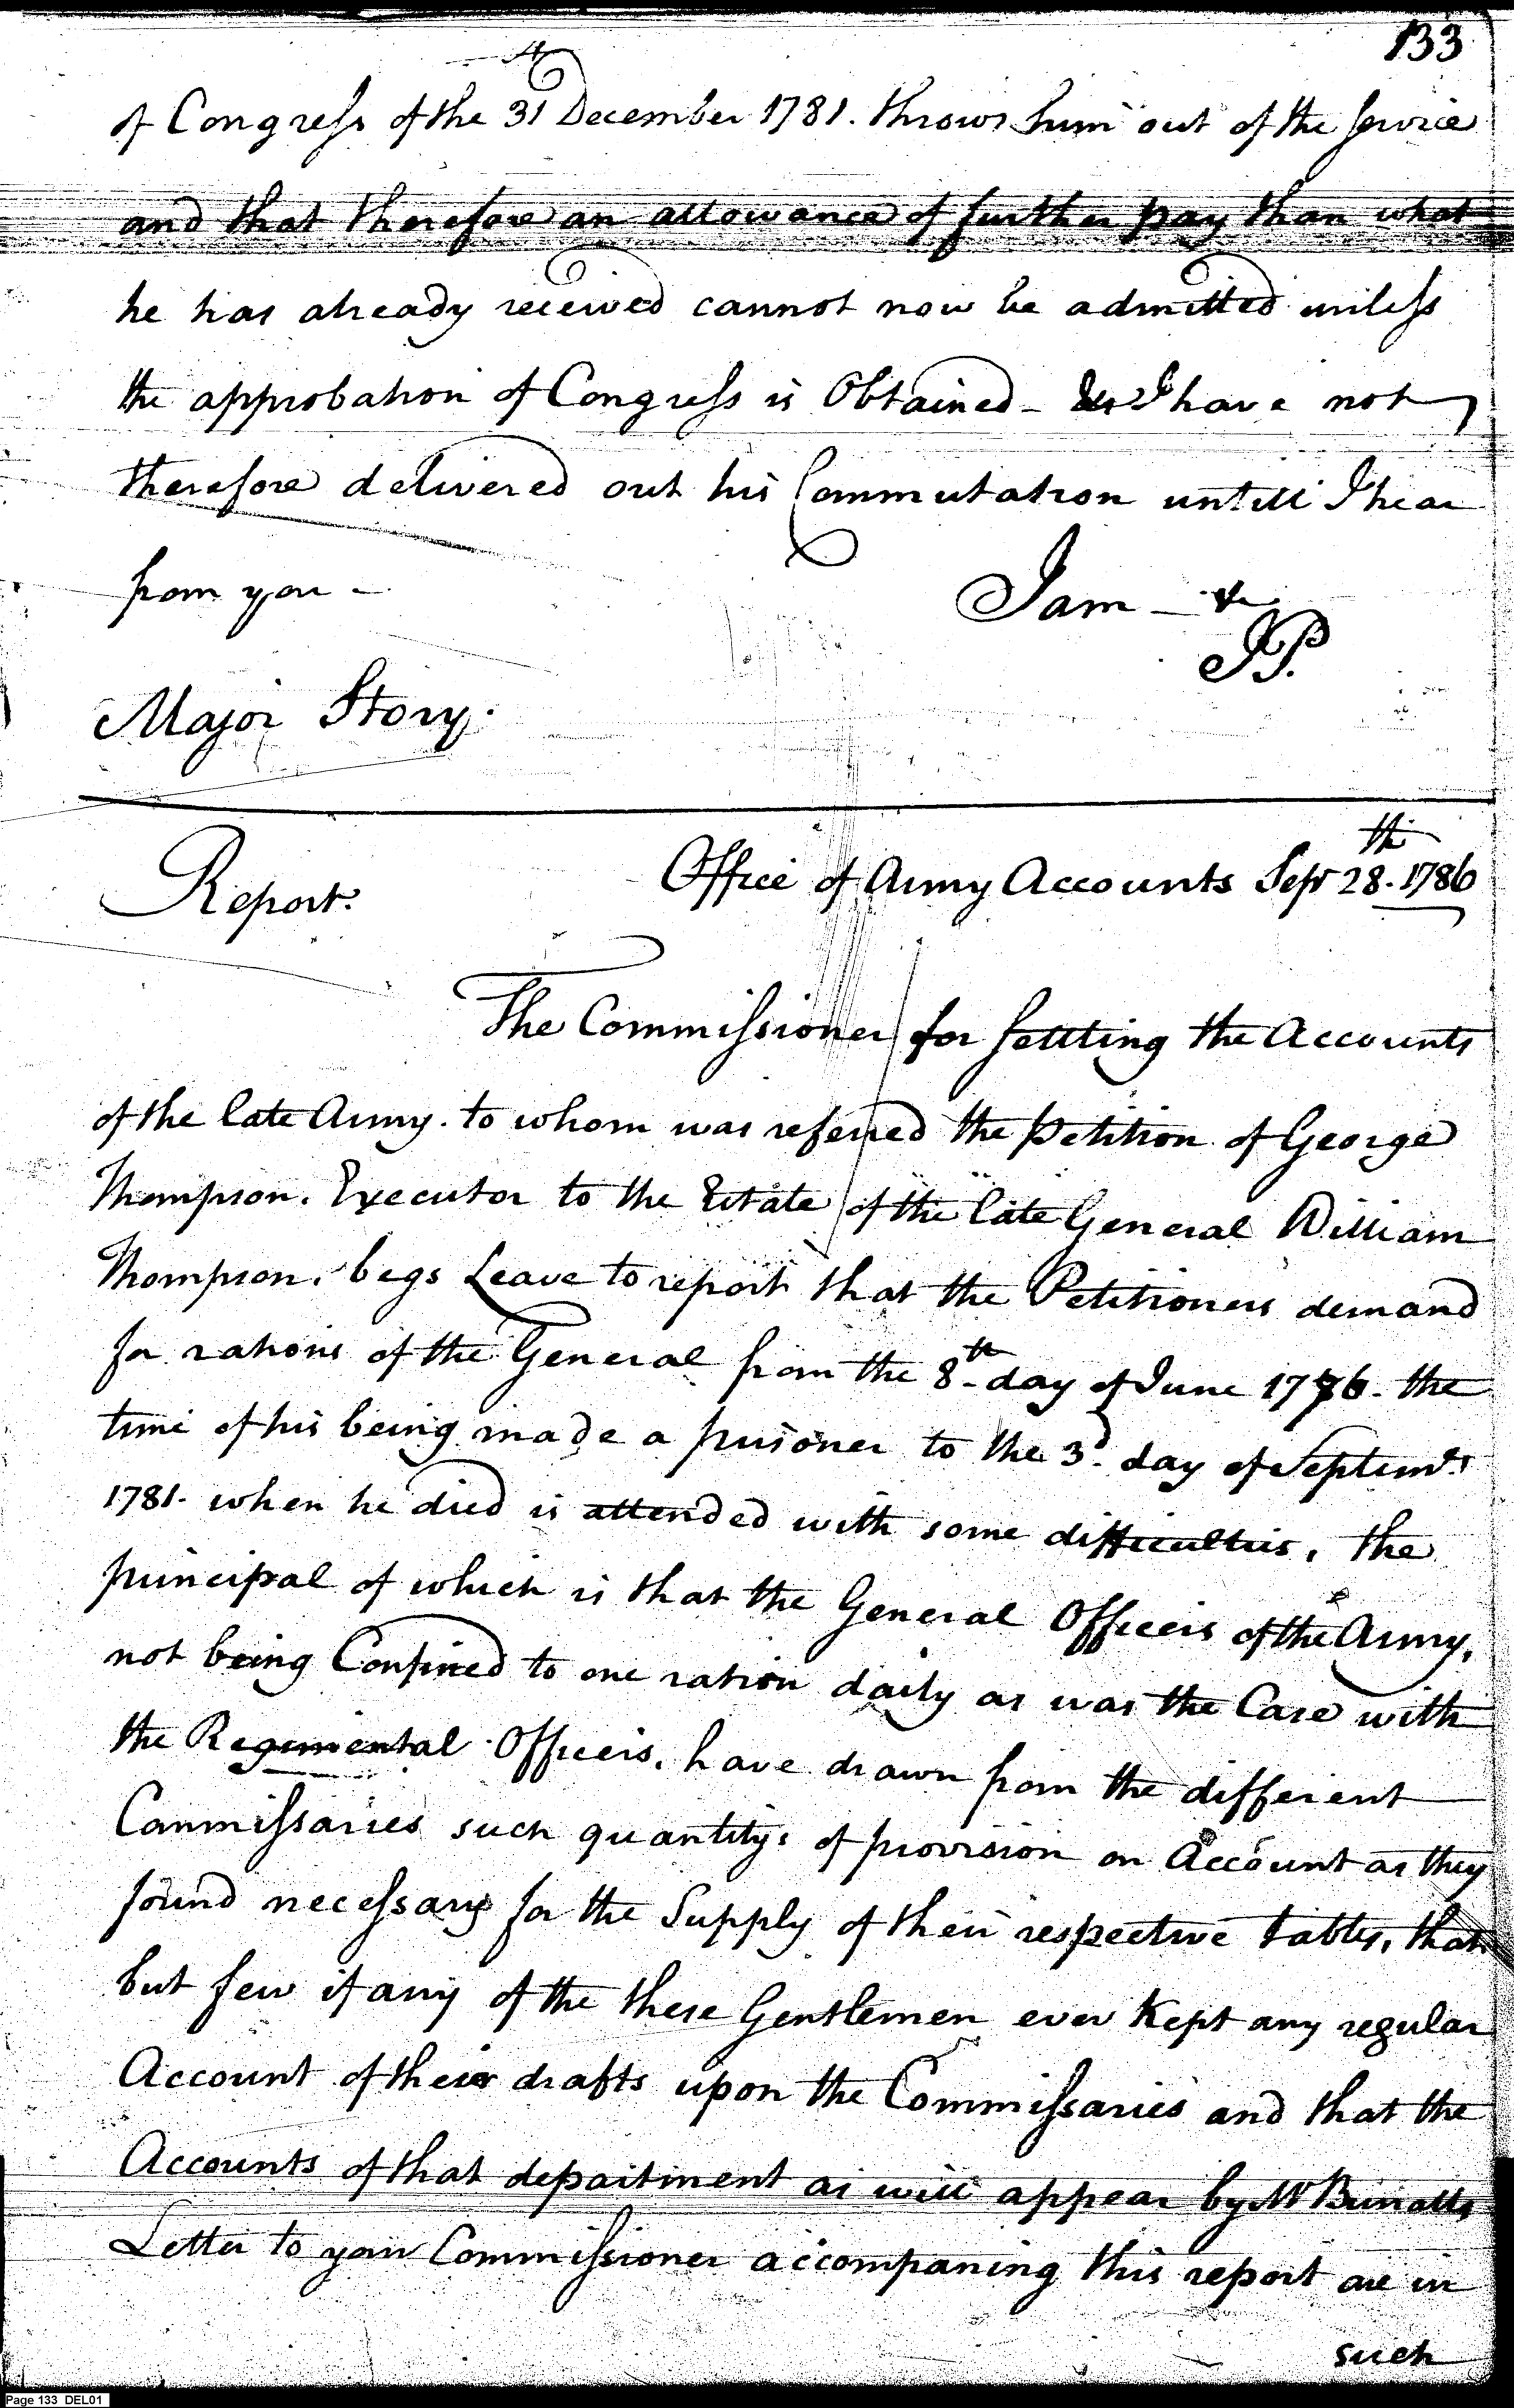 133
of Congress of the 31st December 1781. throws him out of the service
and that therefore an allowance of further pay than what
he has already received cannot now be admitted unless
the approbation of Congress is Obtained - I have not
therefore delivered out his Commutation untill I hear
from you -
I am - &c
JP.
Major Story.
Report.
Office of Army Accounts Sepr 28th 1786
The Commissioner for settling the Accounts
of the late Army. to whom was referred the Petition of George
Thompson. Executor to the Estate of the late General William
Thompson. begs Leave to report that the Petitioners demand
for rations of the General from the 8th day of June 1776. the
time of his being made a prisoner to the 3d day of Septemr
1781. when he died is attended with some difficulties, the
principal of which is that the General Officers of the Army,
not being Confined to one ration daily as was the Case with
the Regimental Officers. have drawn from the different
Commissaries such quantitys of provision on Account as they
found necessary for the Supply of their respective tables, that
but few if any of the these Gentlemen ever Kept any regular
Account of their drafts upon the Commissaries and that the
Accounts of that department as will appear by Mr
Letter to your Commissioner accompaning this report are in
such
Page 133 DEL01